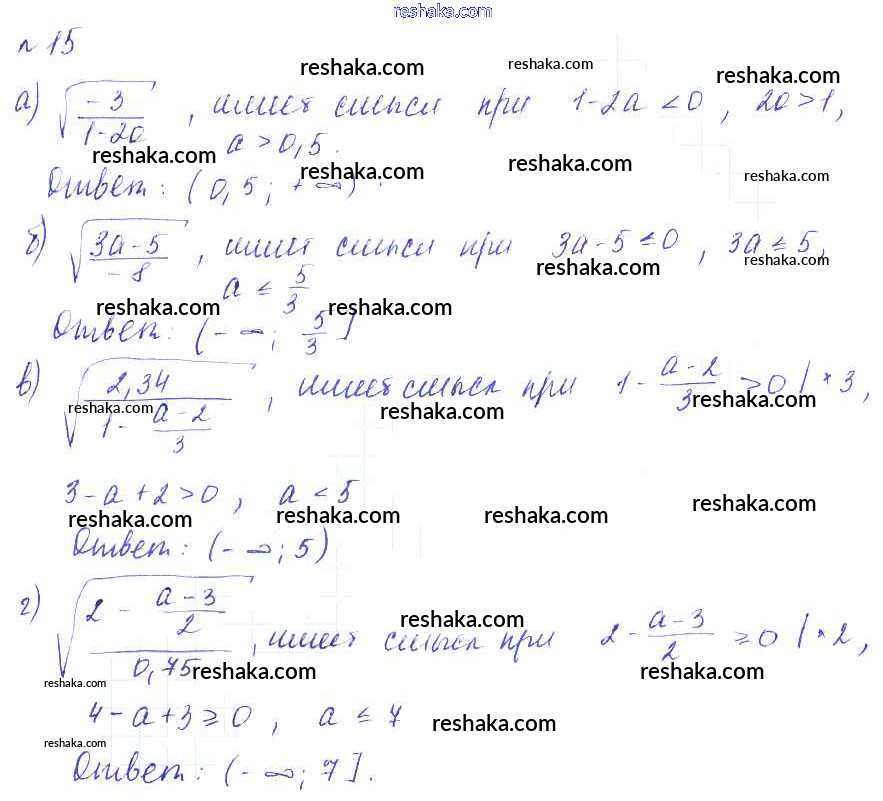 reshaka.com
№ 15
reshaka.com reshaka.com reshaka.com
а) √(-3/(1-2a)) , имеет смысл при 1-2a < 0 , 2a > 1 ,
a > 0,5 .
reshaka.com reshaka.com reshaka.com reshaka.com
Ответ: (0,5 ; +∞) .
б) √((3a-5)/-8) , имеет смысл при 3a-5 ≤ 0 , 3a ≤ 5 ,
reshaka.com reshaka.com
a ≤ 5/3
reshaka.com reshaka.com
Ответ: (-∞; 5/3]
в) √(2,34/(1-(a-2)/3)) , имеет смысл при 1-(a-2)/3 > 0 | * 3 ,
reshaka.com reshaka.com reshaka.com
3-a+2 > 0 , a < 5
reshaka.com reshaka.com reshaka.com reshaka.com
Ответ: (-∞; 5)
г) √((2-(a-3)/2)/0,75) , имеет смысл при 2-(a-3)/2 ≥ 0 | * 2 ,
reshaka.com
reshaka.com reshaka.com reshaka.com
4-a+3 ≥ 0 , a ≤ 7
reshaka.com reshaka.com
Ответ: (-∞; 7] .